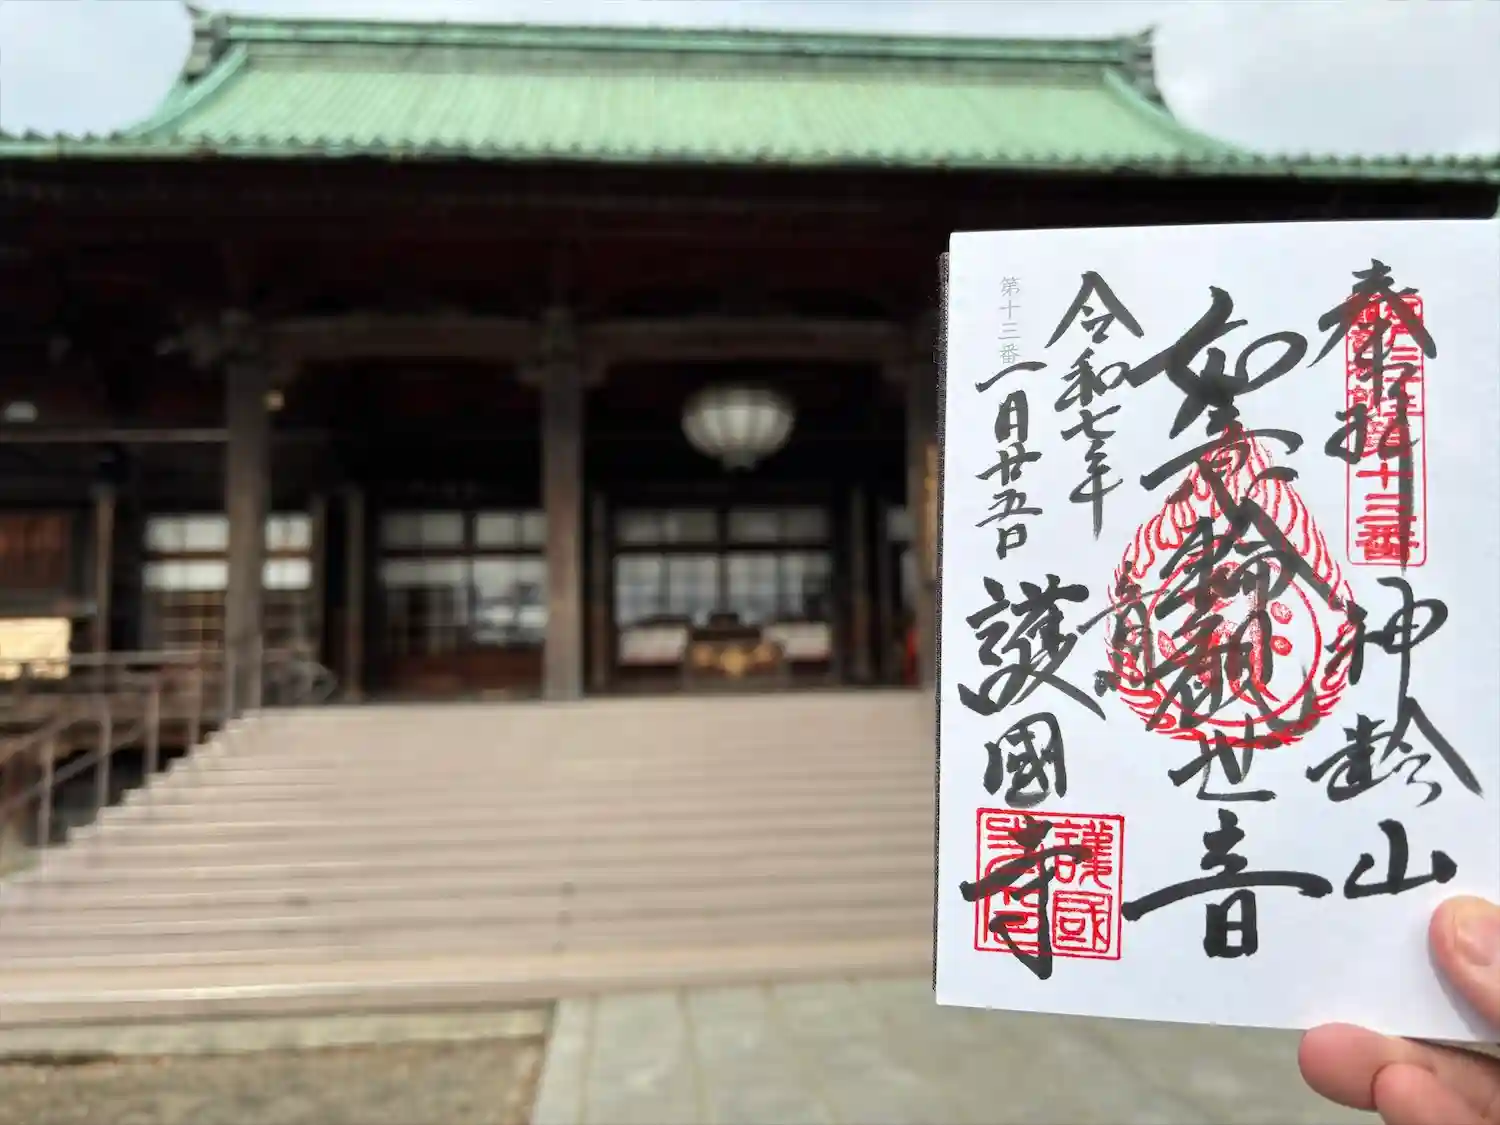 奉拝
第十三番
神齢山
如意輪観世音
令和七年
一月廿五日
護國寺
第十三番
護國